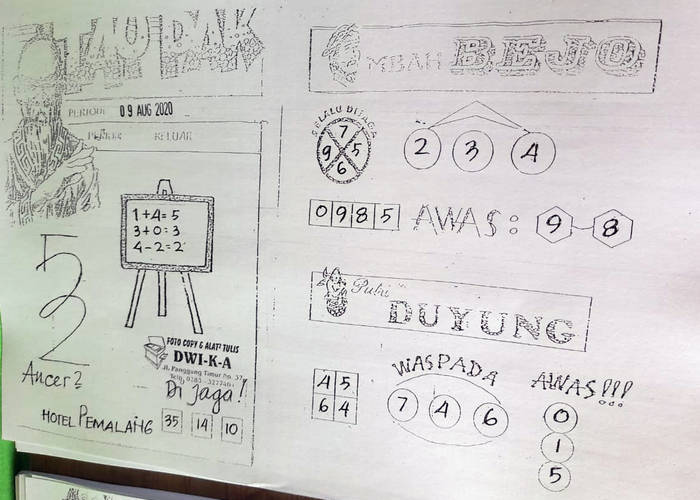 TAU PAK
PERIODE 09 AUG 2020
KELUAR
1+4=5
3+0=3
4-2=2
52
Ancer2
FOTO COPY & ALAT² TULIS
DWI-K-A
Jl. Panggung Timur No. 37
Di jaga!
HOTEL PEMALANG 35 14 10
MBAH BEJO
SELALU DIJAGA
7
9 5
6
2 3 4
0 9 8 5 AWAS: 9-8
Putri
DUYUNG
4 5
6 4
WASPADA
7 4 6
AWAS!!!
0
1
5